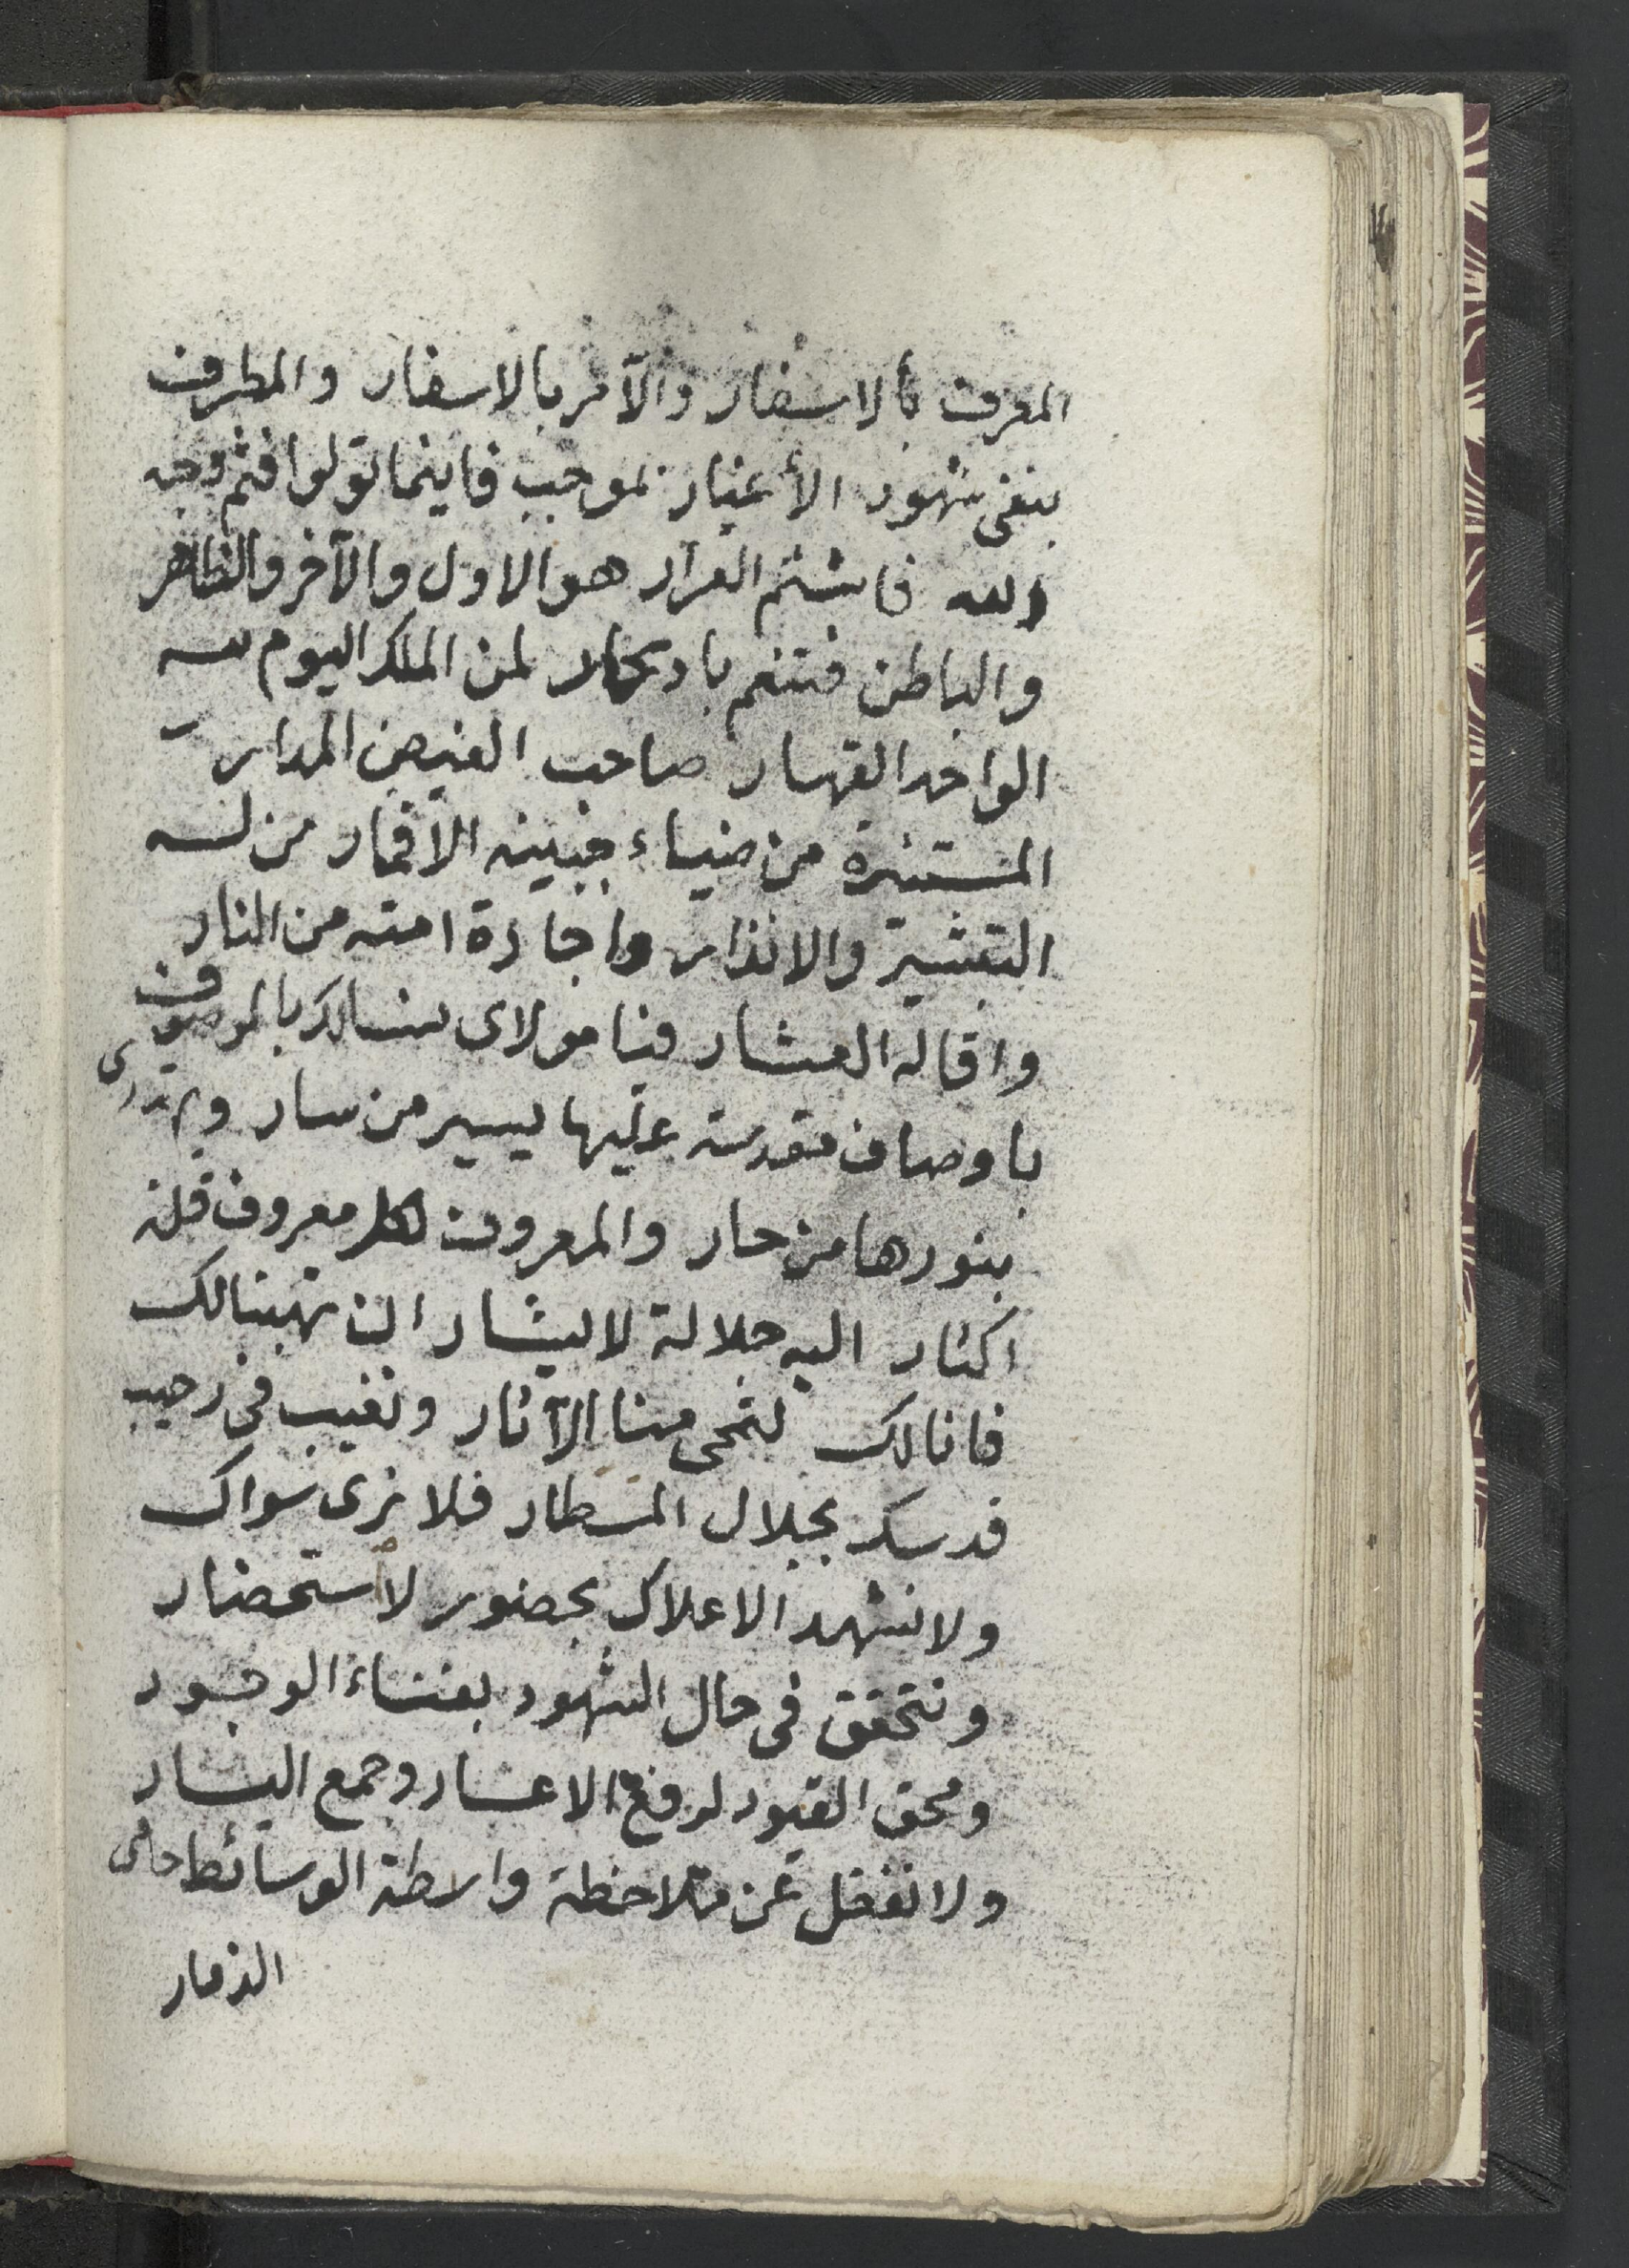 المعرف بالاسفار والآمر بالاسفار والمطرف
بنفى شهود الأغيار بموجب فاينما تولوا فثم وجه
الله فابشتم العرار هو الاول والآخر والظاهر
والباطن فتنعم لمن الملك اليوم لله
الواحد القهار صاحب الفيض المدرار
المستنيرة من ضياء جبينه الاقمار من له
التبشير والانذار واجارة امته من النار
واقالة العثار فيا مولاى نسالك بالموصوف
باوصاف مقدسة عليها يسير من سار ويهتدى
بنورها من حار والمعروف لكل معروف قلة
اكثار اليه جلالة لا يشار ان تهبنا لك
فانا لك لتمحى منا الآثار ونغيب فى رحيب
قدسك بجلال المسطار فلا نرى سواك
ولا نشهد الاعلاك بحضور لاستحضار
ونتحقق فى حال الشهود بفناء الوجود
ومحق القيود لرفع الاعسار وجمع اليسار
ولا نغفل عن ملاحظة واسطة الوسائط حامى
الذمار